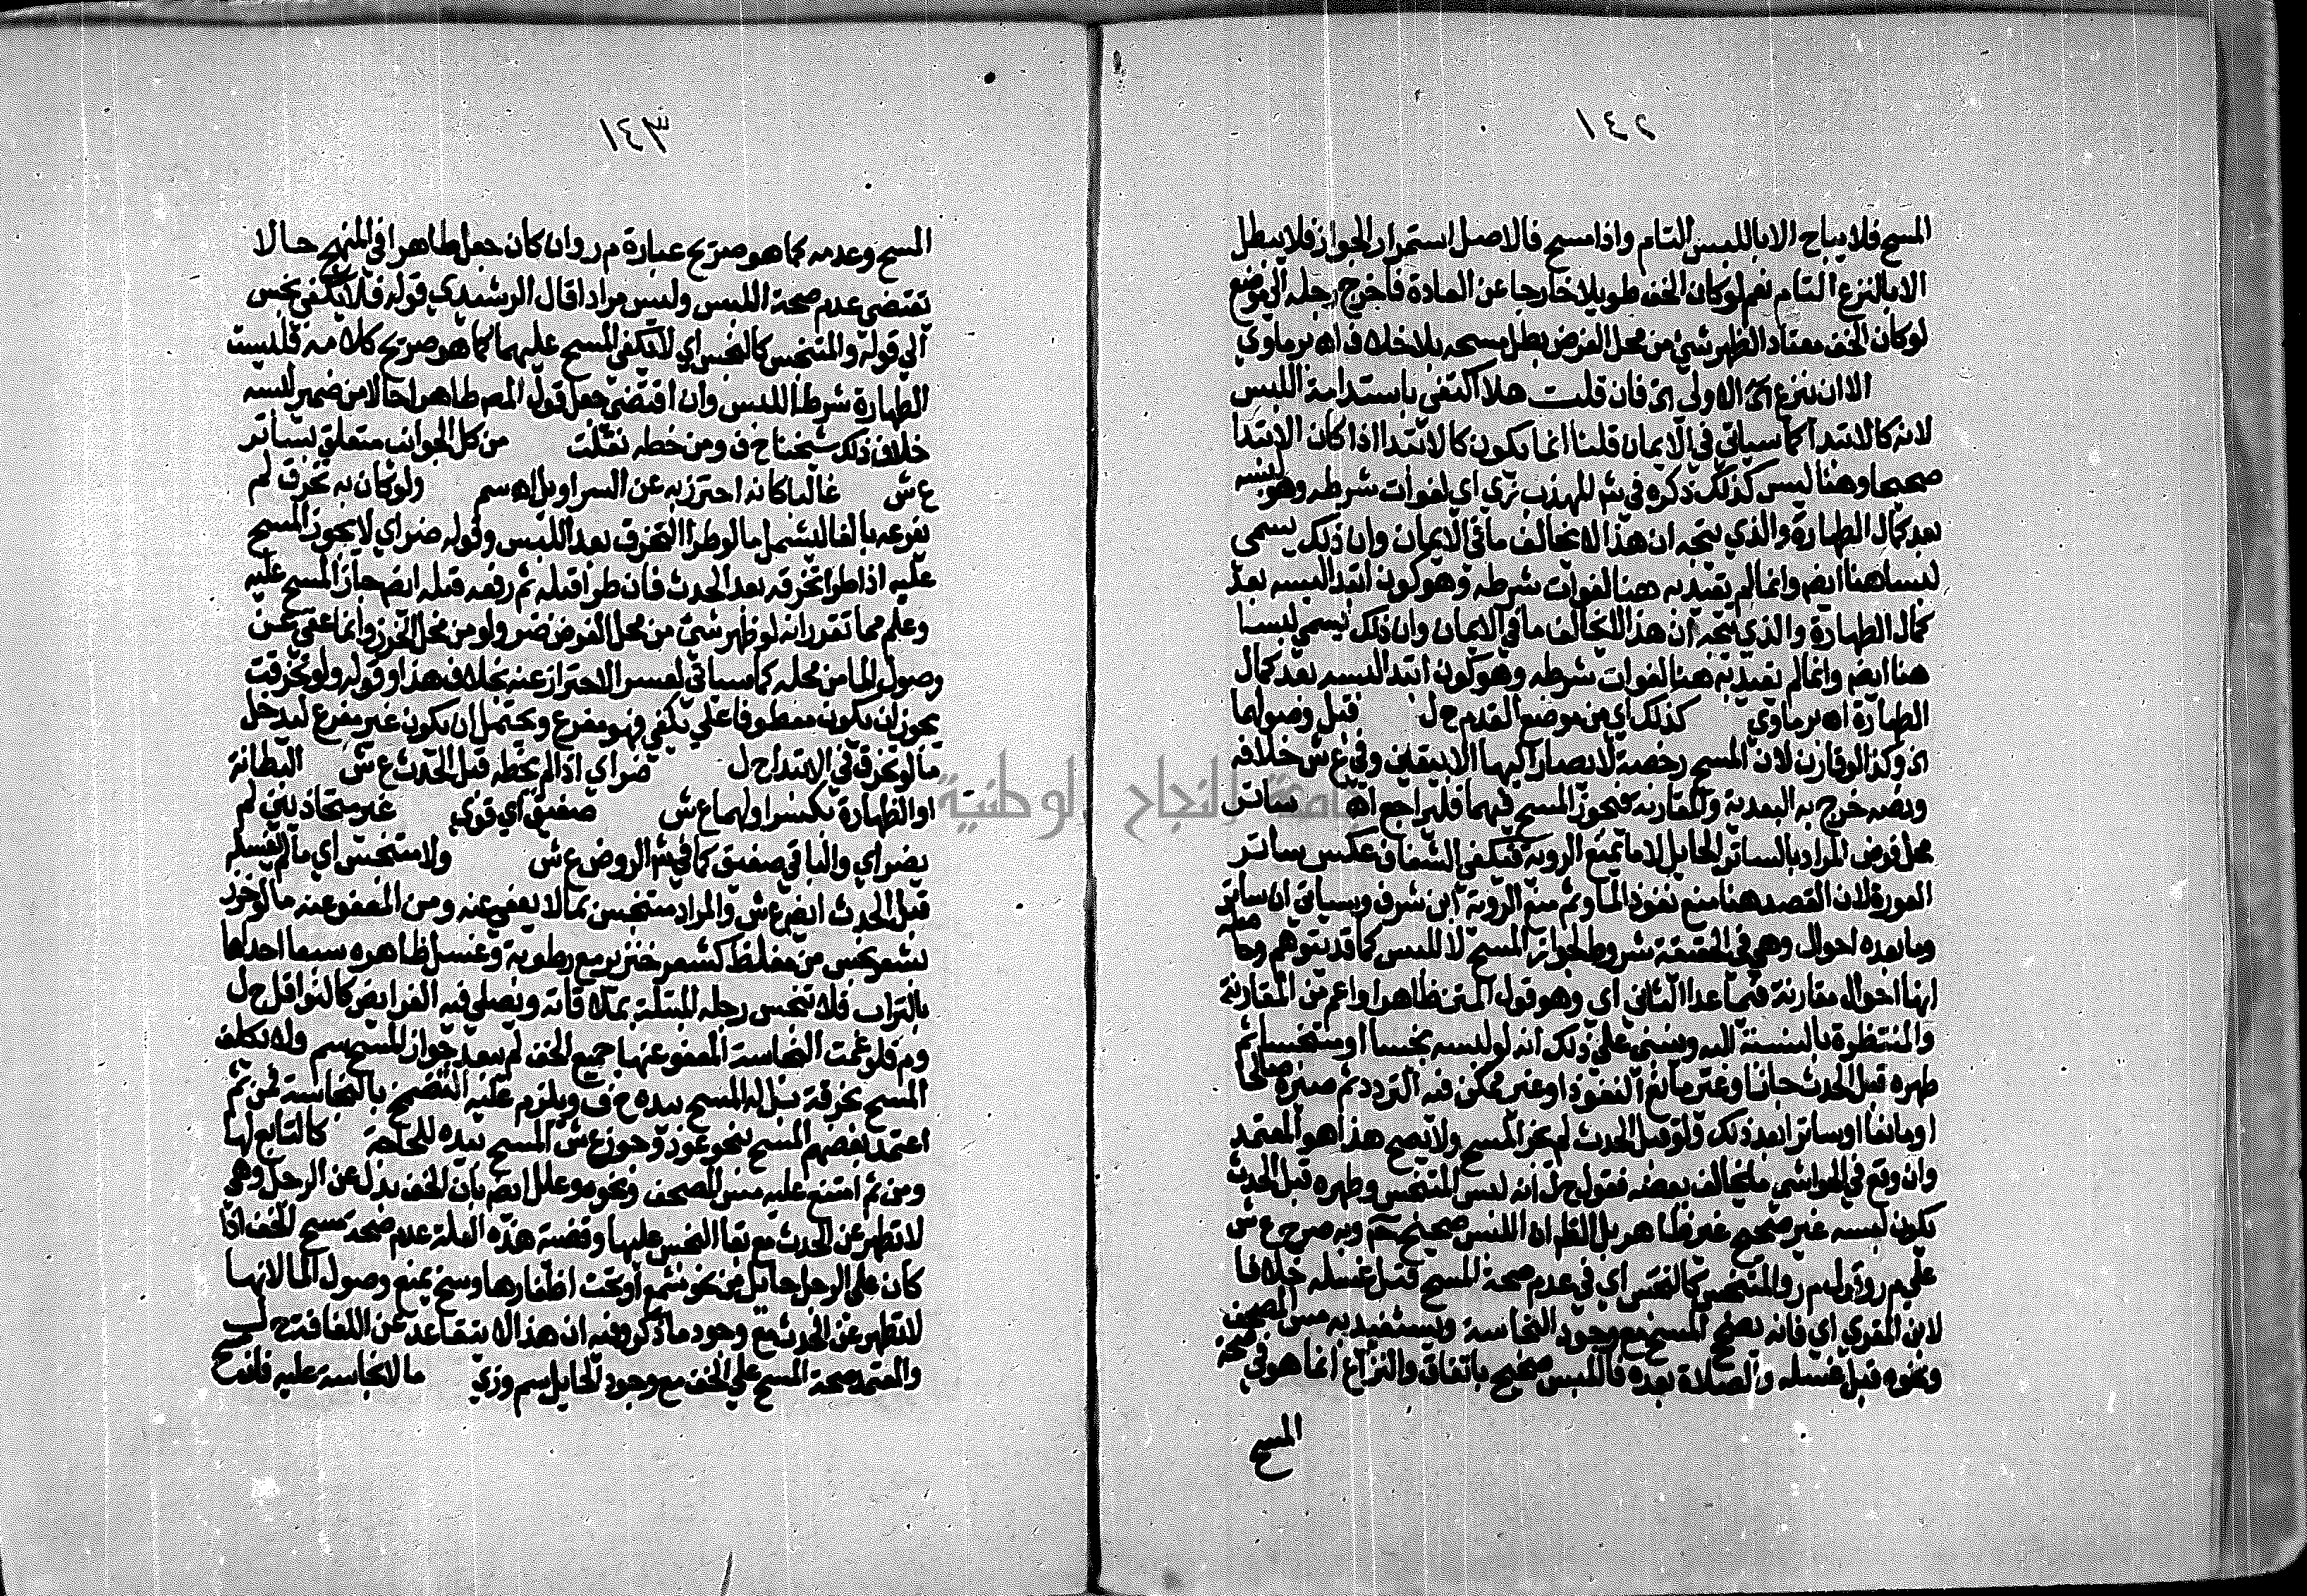 ١٤٢
المسح فلا يباح الا باللبس التام واذا مسح فالاصل استمرار الجواز فلا يبطل
الا بالنزع التام نعم لو كان الخف طويلا خارجا عن العادة فاخرج رجله الى موضع
لو كان الخف معتادا لظهر شئ من محل الفرض بطل مسحه بلا خلاف اه برماوي
الا ان ينزع اى الاولى اى فان قلت هلا اكتفى باستدامة اللبس
لانه كالابتدا كما سياتي في الايمان قلنا انما يكون كالابتدا اذا كان الابتدا
صحيحا وهنا ليس كذلك ذكره في ش المهذب زي اي لفوات شرطه وهو لبسه
بعد كمال الطهارة والذي يتجه ان هذا لا يخالف ما في الايمان وان ذلك يسمى
لبسا هنا ايض وانما لم يعتد به هنا لفوات شرطه وهو كون ابتد اللبسه بعد
كمال الطهارة والذي يتجه ان هذا لا يخالف ما في الايمان وان ذلك يسمى لبسا
هنا ايض وانما لم يعتد به هنا لفوات شرطه وهو كون ابتد اللبسه بعد كمال
الطهارة اه برماوي كذلك اي من موضع القدم ح ل قبل وصولها
اى وكذا لو قارن لان المسح رخصة لا يصار اليها الا بيقين وفي ع ش خلافه
ونصه خرج به البعدية والمقارنة فيجوز المسح فيهما فليراجع اه ساتر
محل فرض المراد بالساتر الحايل لا ما يمنع الروية فيكفي الشفاف عكس ساتر
العورة لان القصد هنا منع نفوذ الما وثم منع الروية ابن شرف وسياتي ان ساتر
وما بعده احوال وهي في الحقيقة شروط لجواز المسح لا للبس كما قد يتوهم
انها احوال مقارنة فيما عدا الثاني اي وهو قول المتن طاهرا واعم من المقارنة
والمنتظرة بالنسبة اليه وينبني على ذلك انه لو لبسه نجسا او متنجسا ثم
طهره قبل الحدث جاز او غير مانع النفوذ او غير ممكن فيه التردد ثم صيره صالحا
او مانعا او ساترا بعد ذلك ولو قبل الحدث لم يجز المسح ولا يصح هذا هو المعتمد
وان وقع في الحواشي ما يخالف بعضه فقول ح ل انه لبس المتنجس وطهره قبل الحدث
يكون لبسه غير صحيح غير ظاهر بل الظ ان اللبس صحيح ثم وبه صرح ع ش
على م ر وقول م ر والمتنجس كالنجس اي في عدم صحة المسح قبل غسله خلافا
لابن المقري اي فانه يصح المسح مع وجود النجاسة ويستفيد به مس المصحف
ونحوه قبل غسله والصلاة بعده فاللبس صحيح باتفاق والنزاع انما هو في صحة
المسح
١٤٣
المسح وعدمه كما هو صريح عبارة م ر وان كان جعل طاهرا في المنهج حالا
تقتضي عدم صحة اللبس وليس مرادا قال الرشيدي قوله فلا يكفي نجس
الى قوله والمتنجس كالنجس اي لا يكفي المسح عليهما كما هو صريح كلامه فليست
الطهارة شرطا للبس وان اقتضى جعل قول المص طاهرا حالا من ضمير لبسه
خلاف ذلك شيخنا ح ف ومن خطه نقلت من كل الجوانب متعلق بساتر
ع ش غالبا كانه احترز به عن السراويل اه سم ولو كان به تخرق لم
يفرعه بالفا ليشمل ما لو طرا التخرق بعد اللبس وقوله ضر اي لا يجوز المسح
عليه اذا طرا تخرقه بعد الحدث فان طرا قبله ثم رفعه قبله ايض جاز المسح عليه
وعلم مما تقرر انه لو ظهر شئ من محل الفرض ضر ولو من محل الخرز وانما عفي عن
وصول الما من محله كما سياتي لعسر الاحتراز عنه بخلاف هذا وقوله ولو تخرقت
يجوز ان يكون معطوفا على يكفي فهو مفرع ويحتمل ان يكون غير مفرع ليدخل
ما لو تخرق في الابتدا ح ل ضر اي اذا لم يخطه قبل الحدث ع ش البطانة
او الظهارة بكسر اولهما ع ش صفيق اي قوي غير متحاذيين لم
يضر اي والباقي صفيق كما في ش الروض ع ش ولا متنجس اي ما لم يغسله
قبل الحدث ايض ع ش والمراد متنجس بما لا يعفى عنه ومن المعفو عنه ما لو خرز
بشعر نجس من مغلظ كشعر خنزير مع رطوبة وغسل ظاهره سبعا احداها
بالتراب فلا تنجس رجله المبتلة بملاقاته ويصلي فيه الفرايض كالنوافل ح ل
وم ر فلو عمت النجاسة المعفو عنها جميع الخف لم يبعد جواز المسح سم ولا يكلف
المسح بخرقة بل له المسح بيده ح ف ويلزم عليه التضمخ بالنجاسة فمن ثم
اعتمد بعضهم المسح بنحو عود وجوز ع ش المسح بيده للحاجة كالتابع لها
ومن ثم امتنع عليه مس المصحف ونحوه وعلل ايض بان الخف بدل عن الرجل وهي
لا تطهر عن الحدث مع بقا النجس عليها وقضية هذه العلة عدم صحة مسح الخف اذا
كان على الرجل حايل من نحو شمع او تحت اظفارها وسخ يمنع وصول الما لانها
لا تطهر عن الحدث مع وجود ما ذكر وفيه ان هذا لا يتقاعد عن اللفافة ح ل
والمعتمد صحة المسح على الخف مع وجود الحايل سم وزي ما لا نجاسة عليه فلو مسح
جامعة النجاح الوطنية